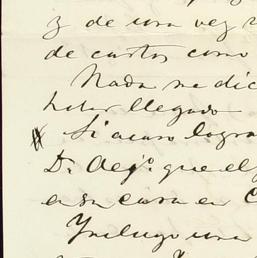 y de una vez
de cartas como
Nada me dic
haber llegado
Si acaso logra
D. Alejo. que el
en su casa en C
Incluyo una